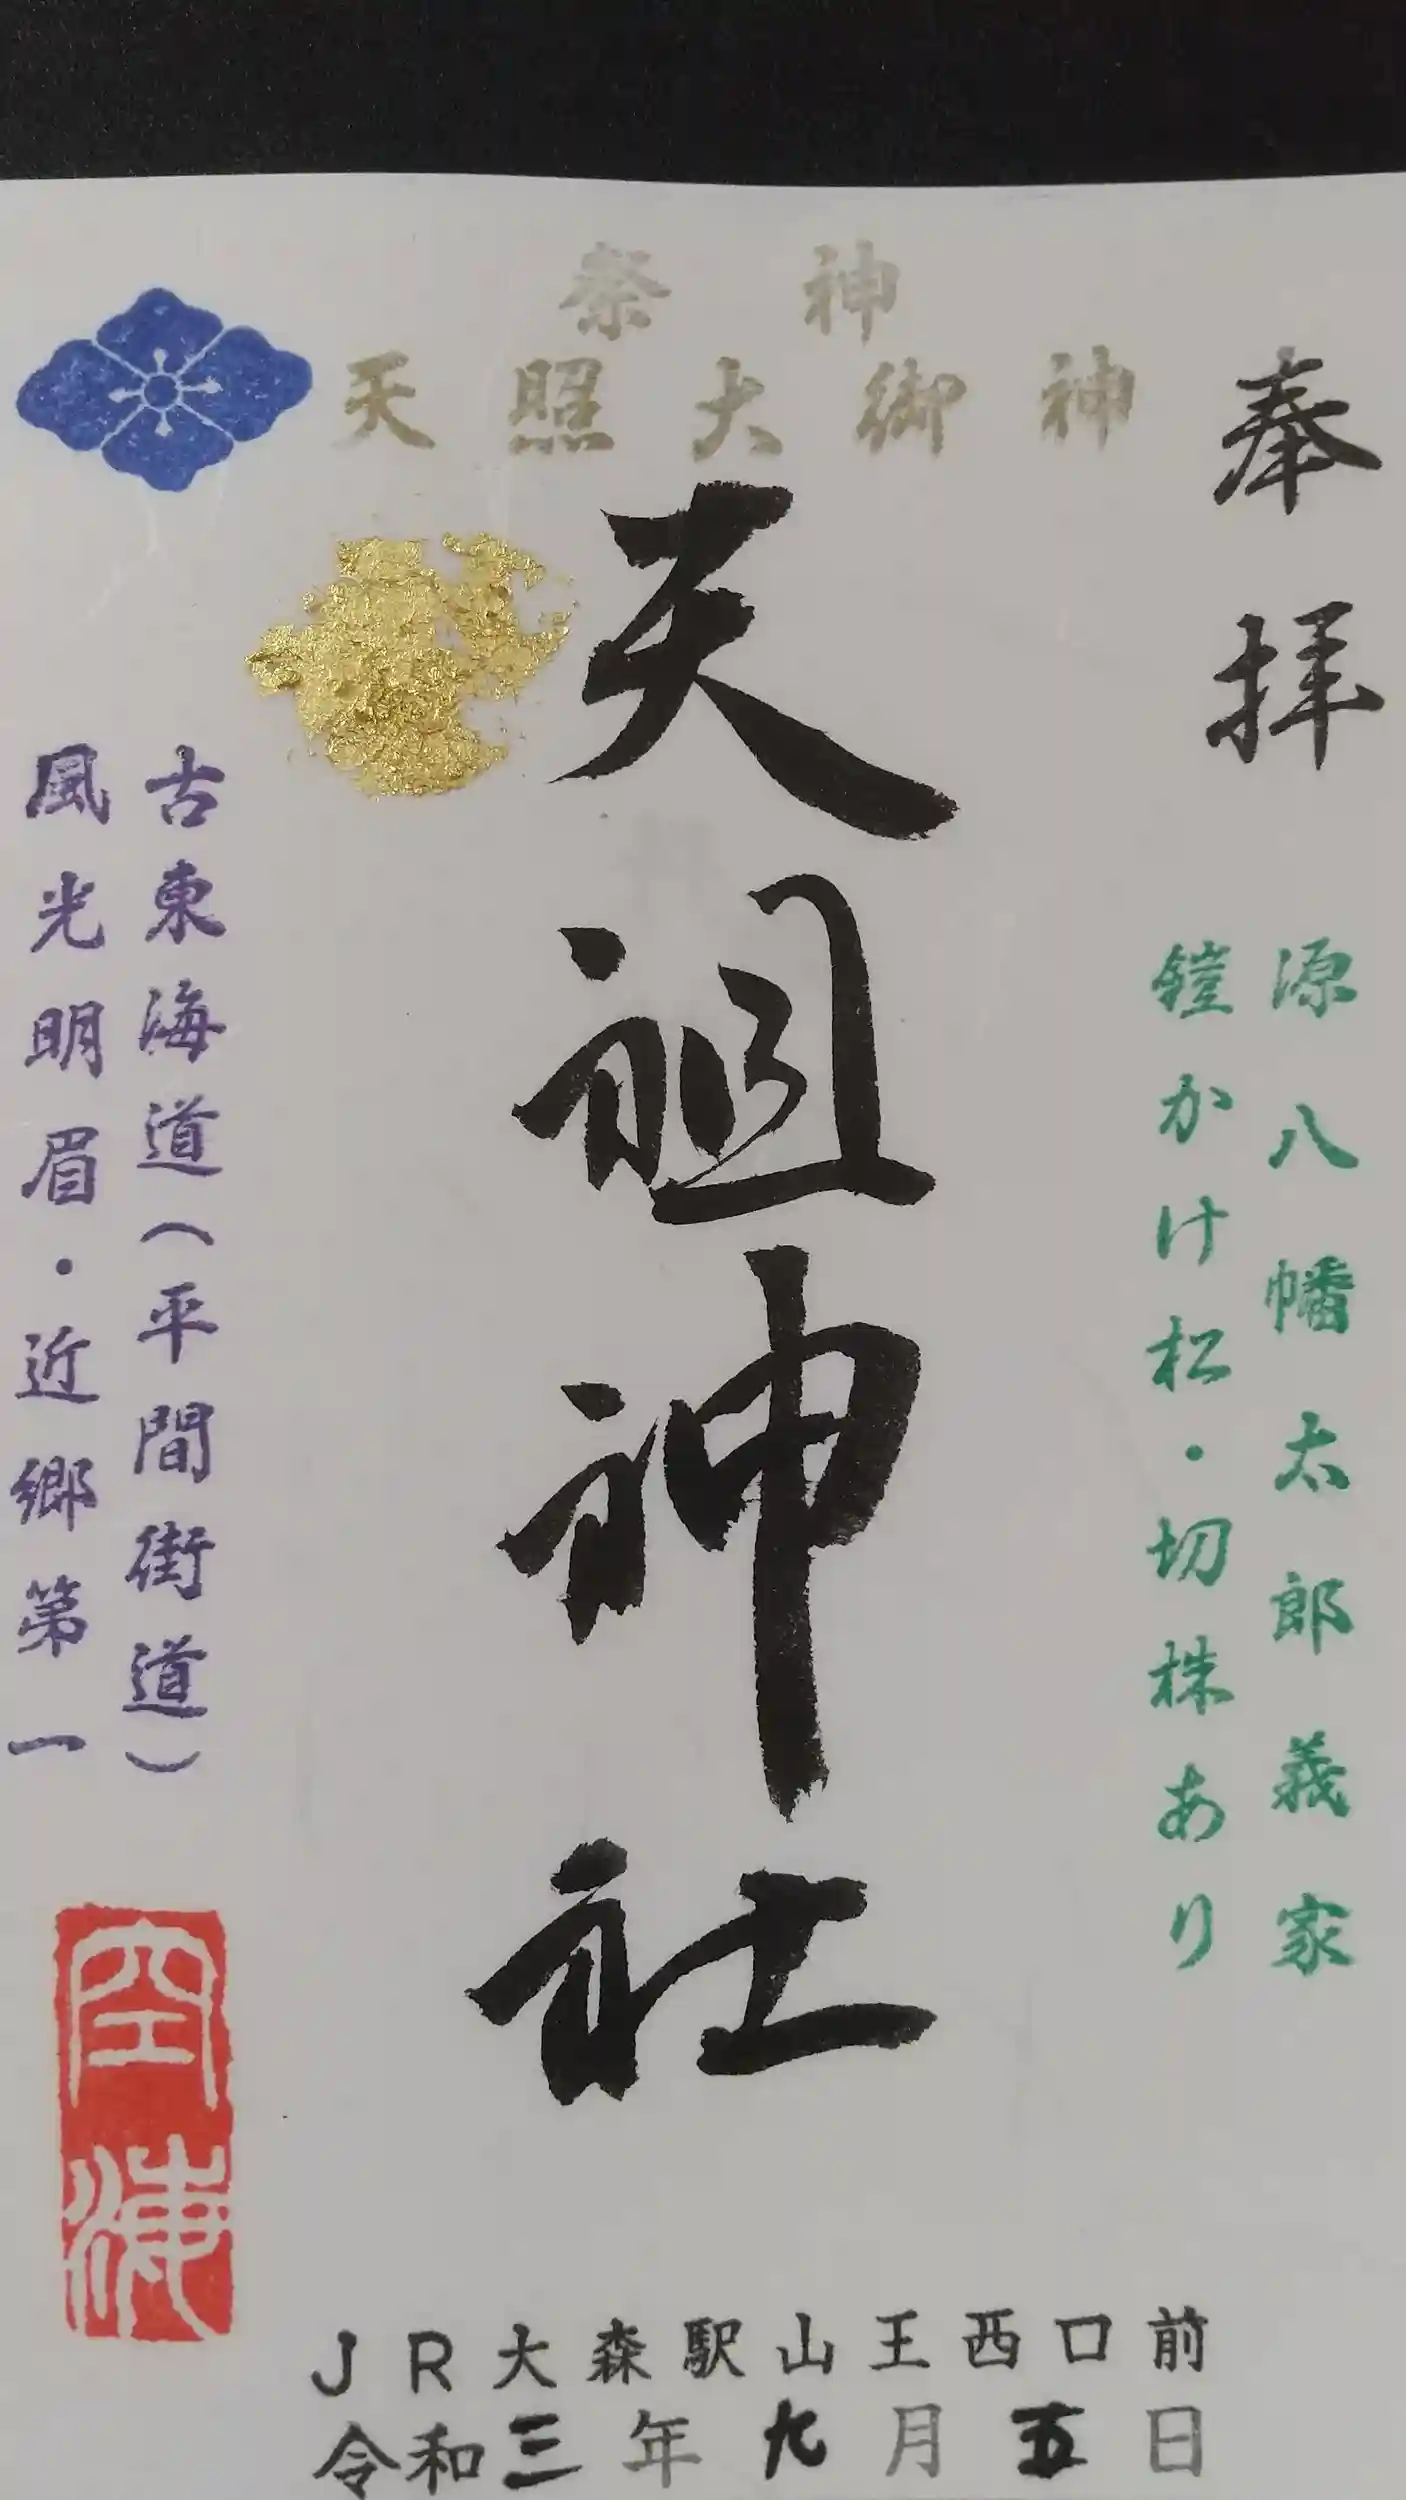 祭神
天照大御神
奉拝
源八幡太郎義家
鎧かけ松・切株あり
天祖神社
古東海道(平間街道)
風光明眉・近郷第一
空海
JR大森駅山王西口前
令和三年九月五日